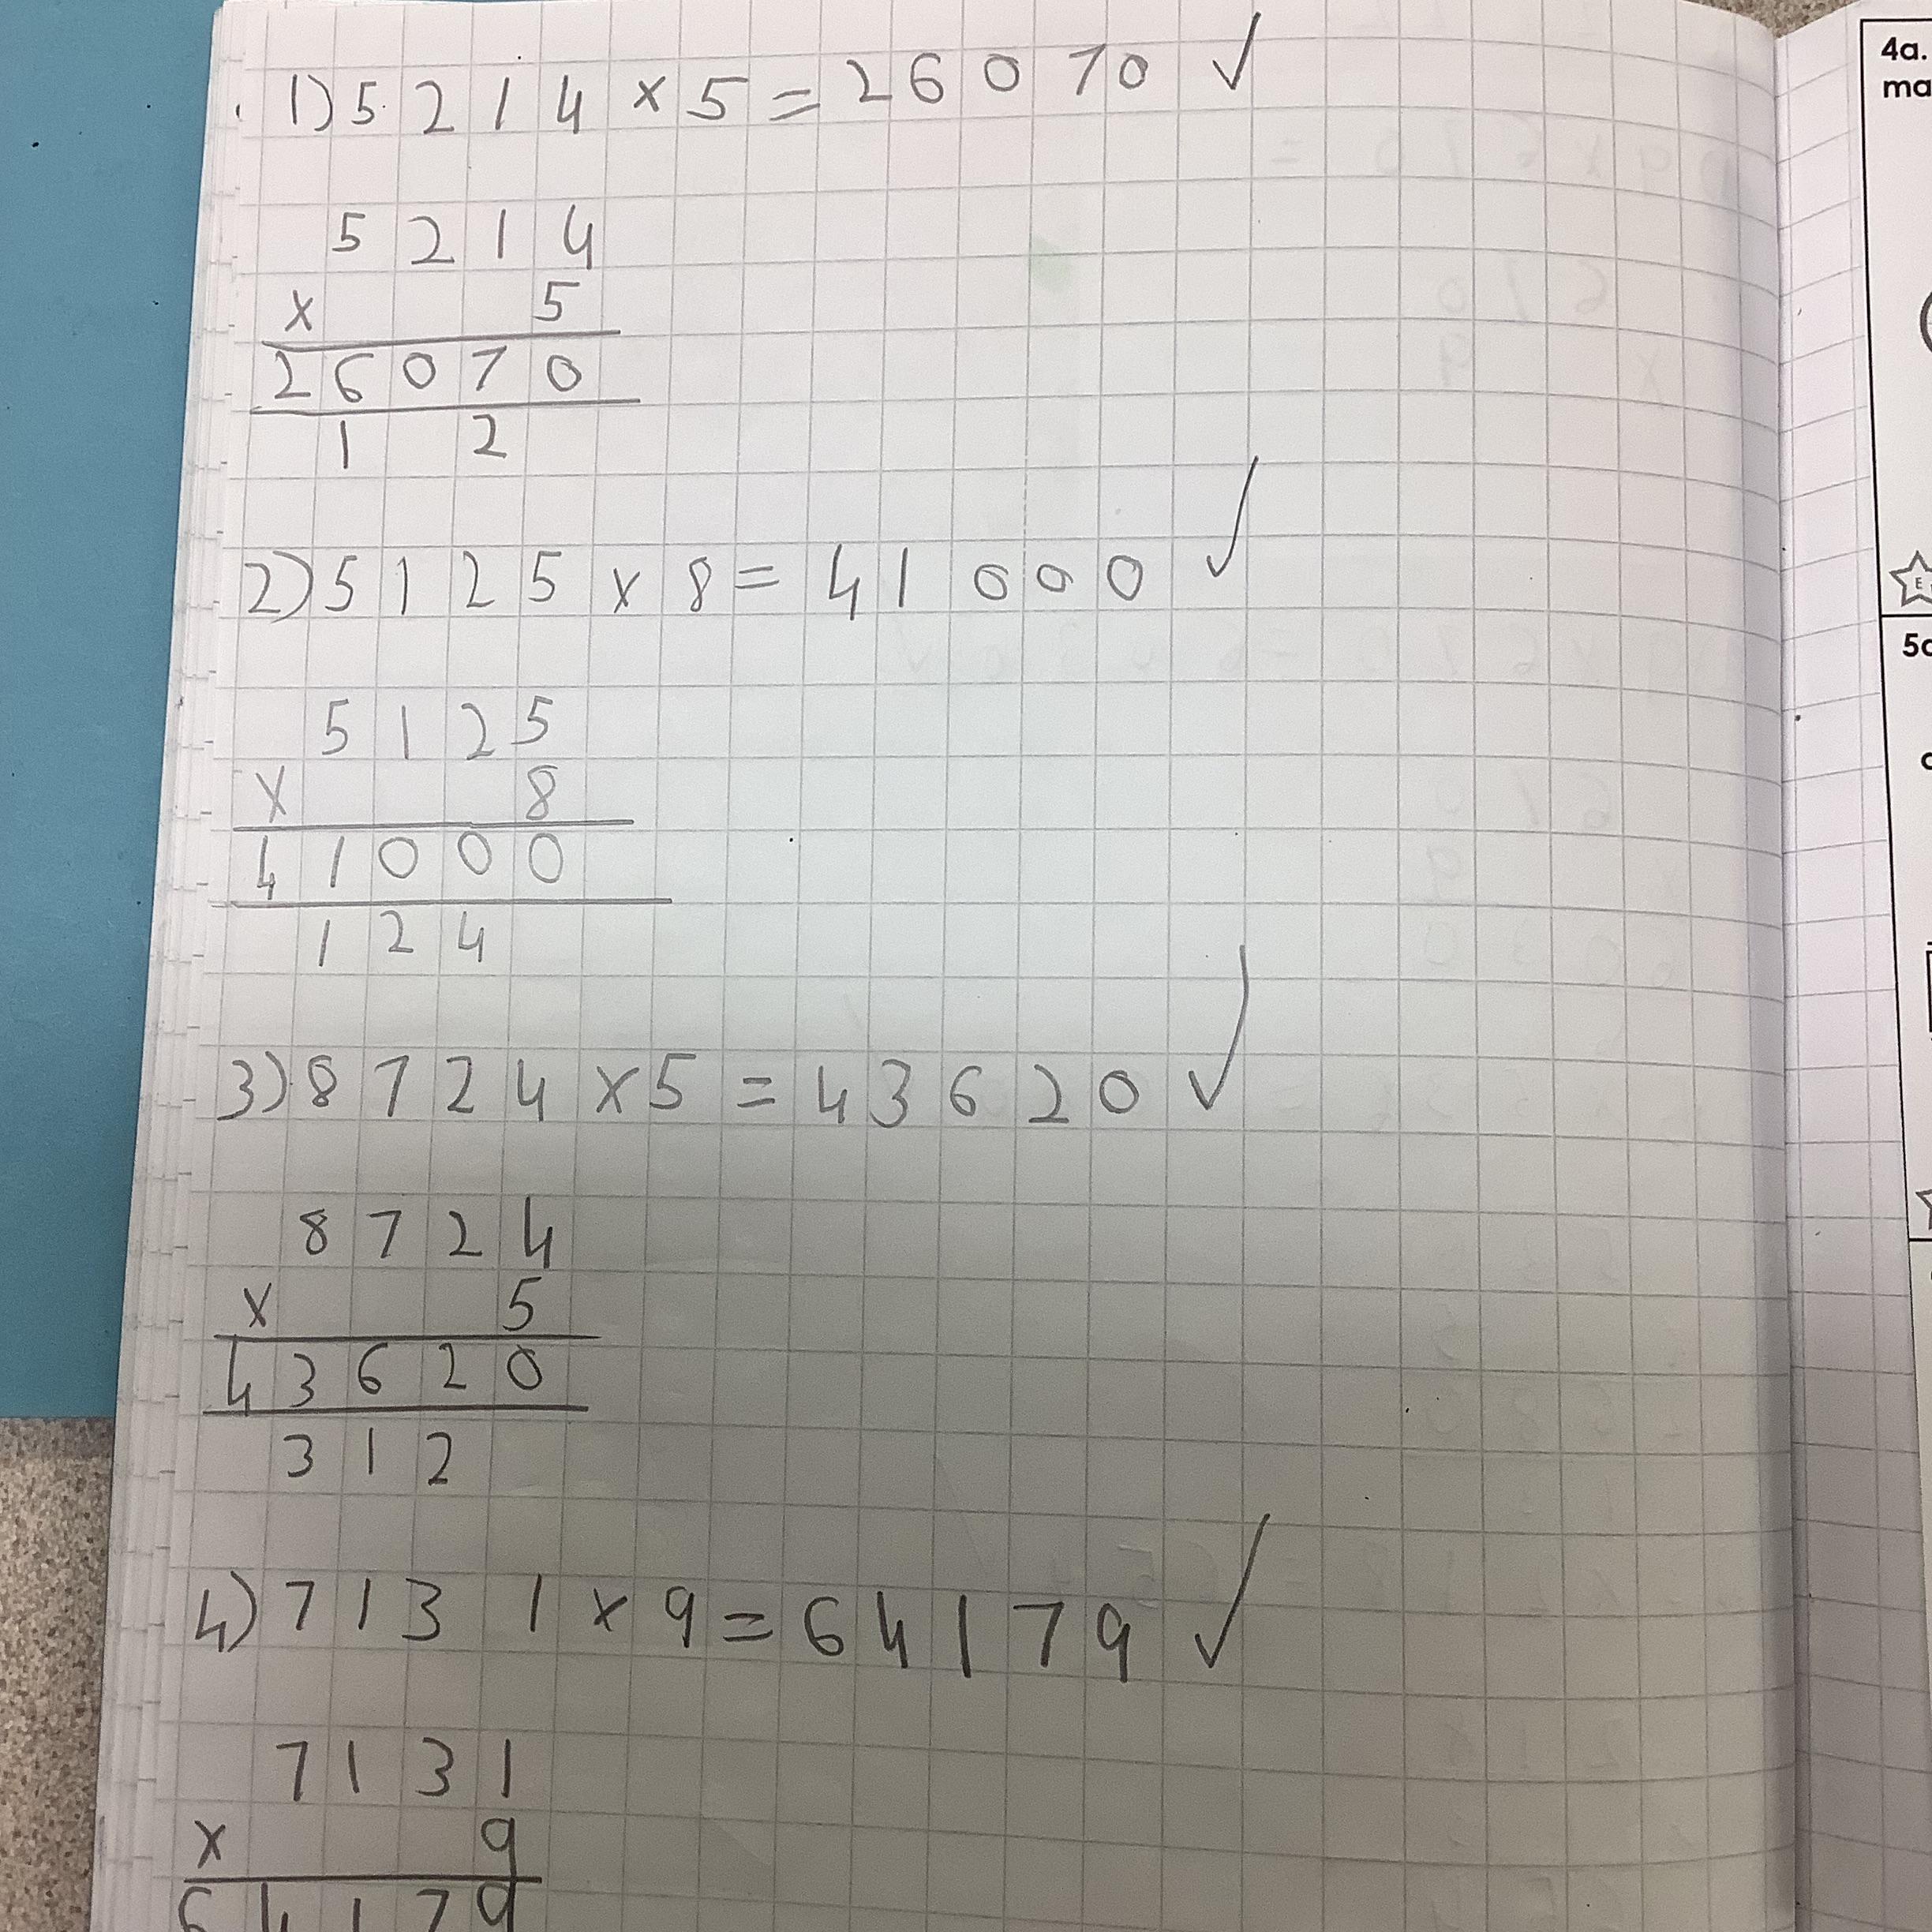 1) 5214 × 5 = 26070 ✓
5214
× 5
26070
1 2
2) 5125 × 8 = 41000 ✓
5125
× 8
41000
124
3) 8724 × 5 = 43620 ✓
8724
× 5
43620
312
4) 7131 × 9 = 64179 ✓
7131
× 9
64179
4a.
ma
E